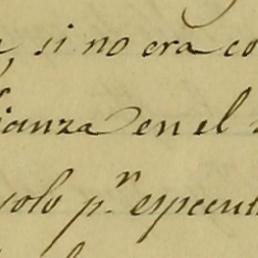 , si no era co
ianza en el
solo p.ⁿ especul